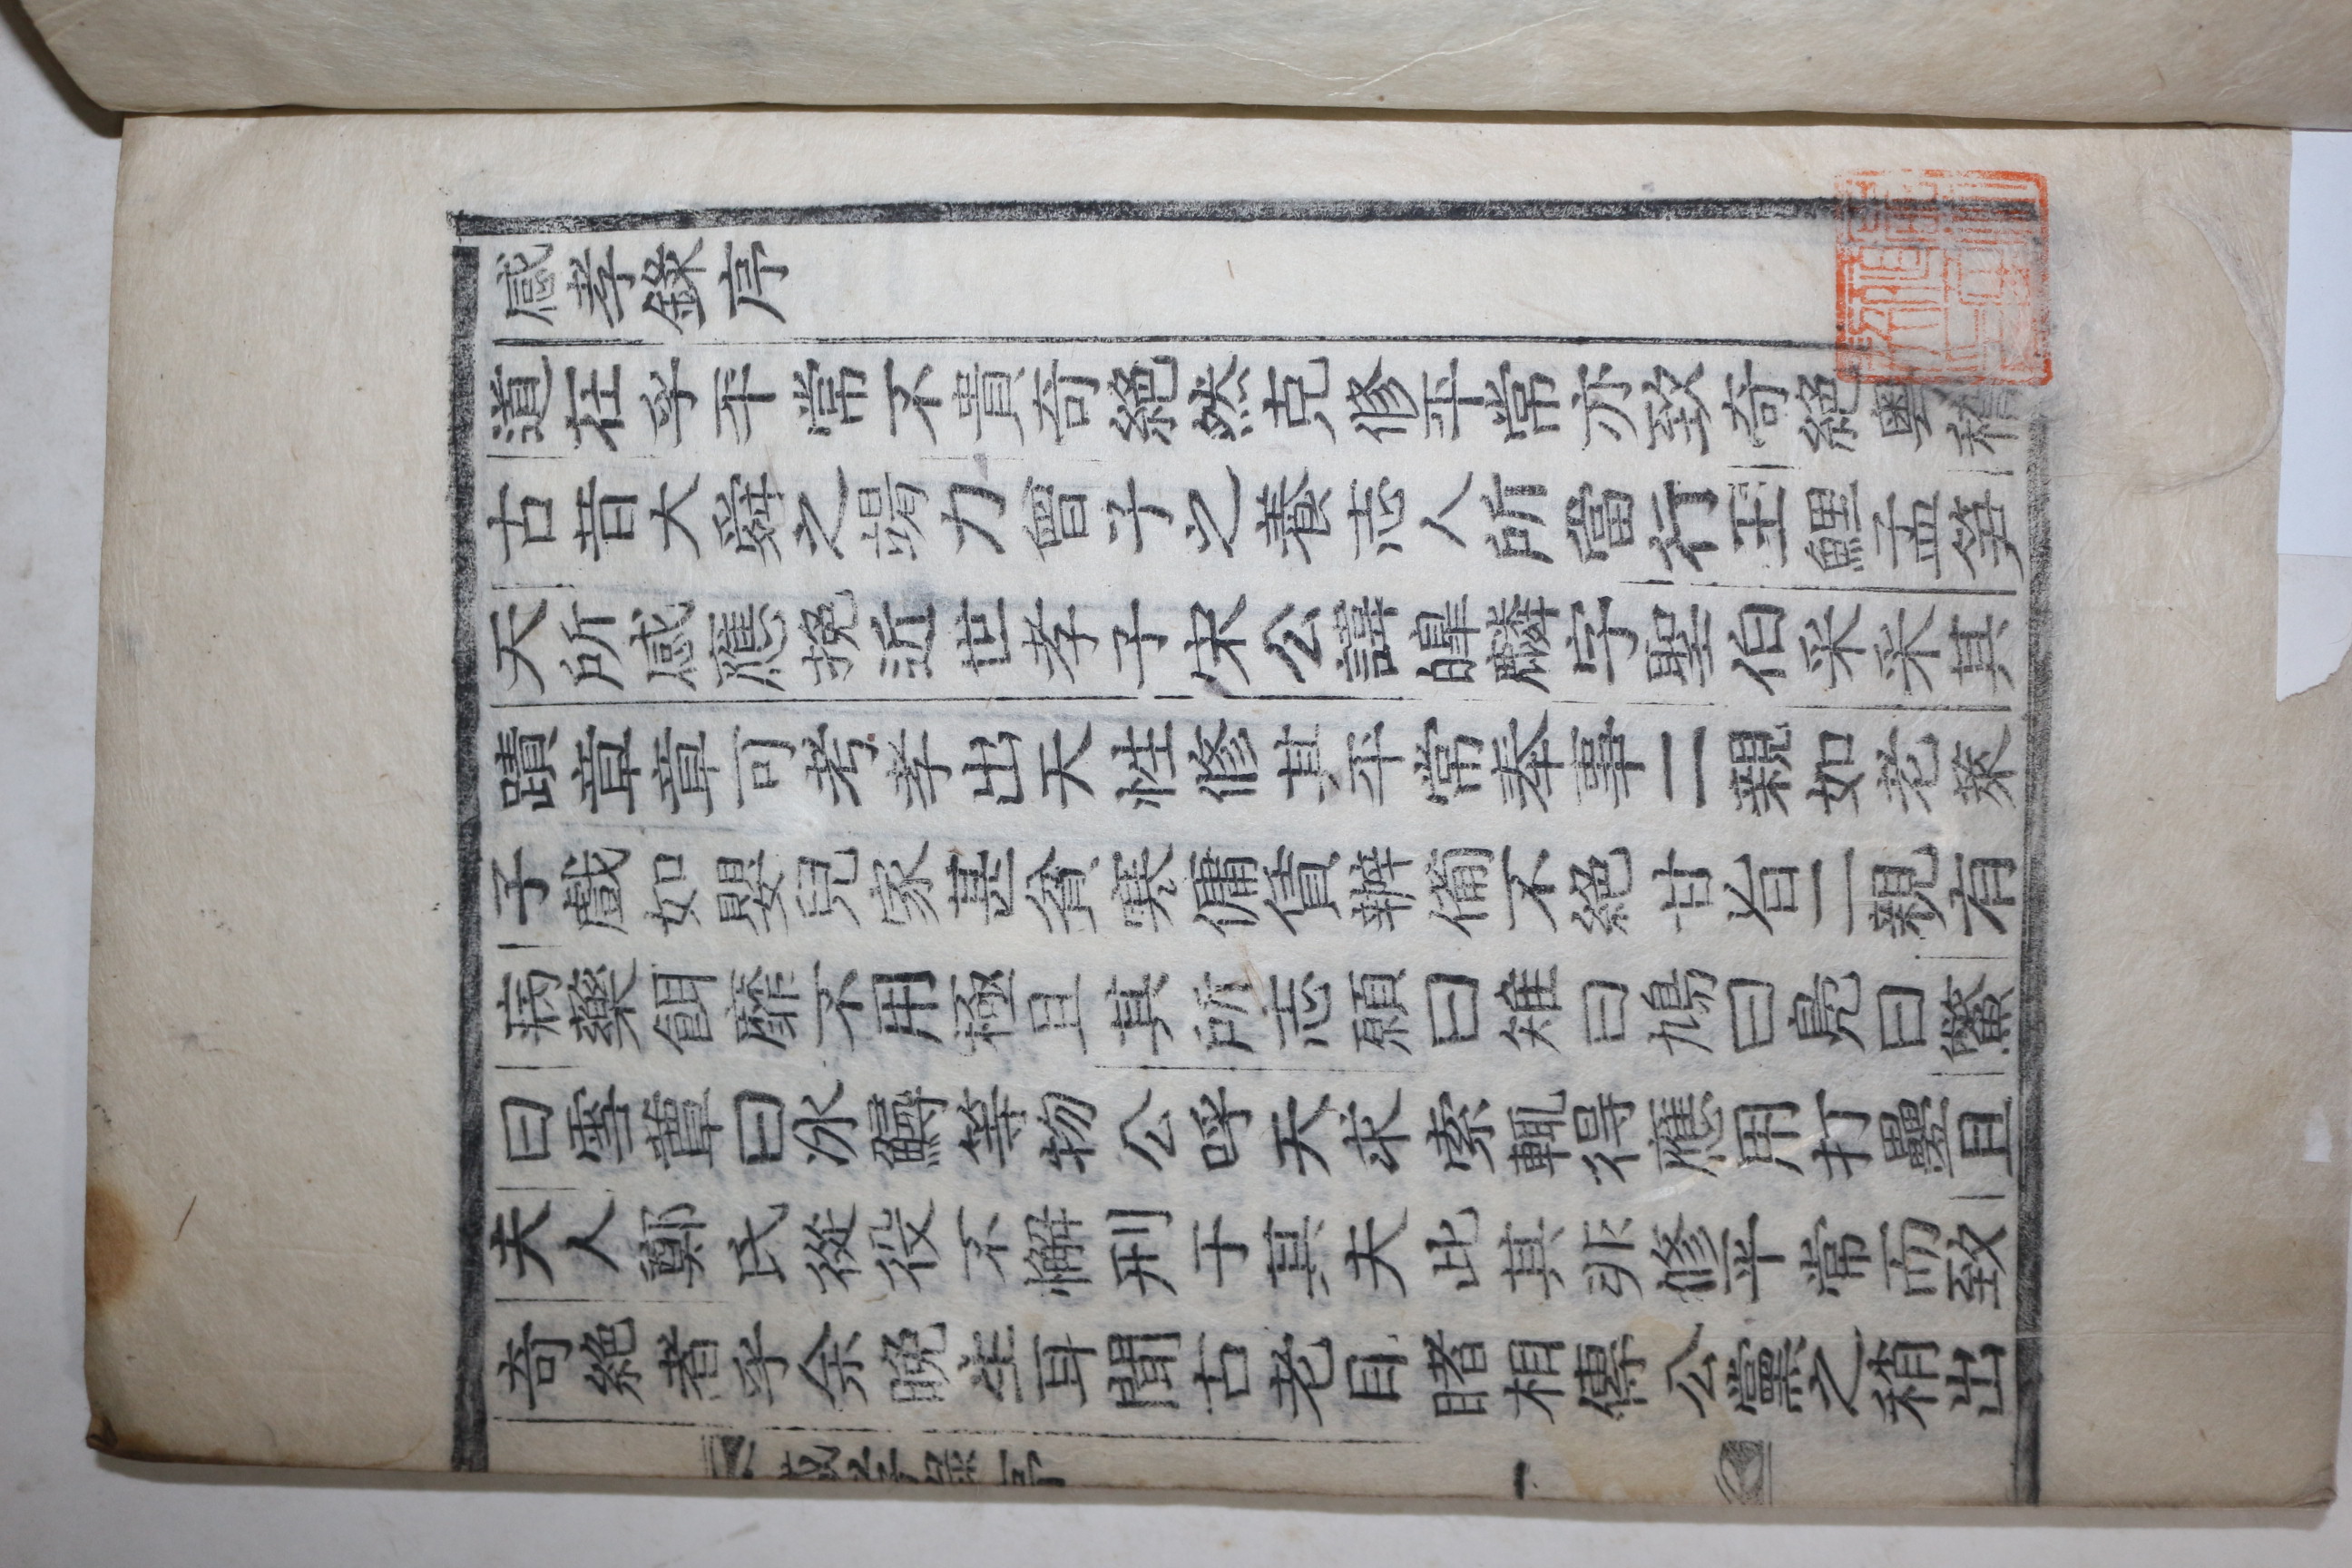 感孝錄序
道在乎平常不貴奇絶然克修平常亦致奇絶粤稽
古昔大舜之竭力曾子之養志人所當行王鯉孟笋
天所感應挽近世孝子宋公諱皥麟字聖伯采采其
蹟章章可考孝出天性修其平常奉事二親如老萊
子戲如嬰兒家甚貧寒傭賃辦備不絶甘旨二親有
病藥餌靡不用極且其所志願曰雉曰鳩曰鳧曰鱉
曰雪蕈曰冰鱘等物公呼天求索輒得應用打疊且
夫人鄭氏從役不懈刑于其夫此其非修平常而致
奇絶者乎余晩生耳聞古老目睹相傳公黨之稍出
感孝錄序
一